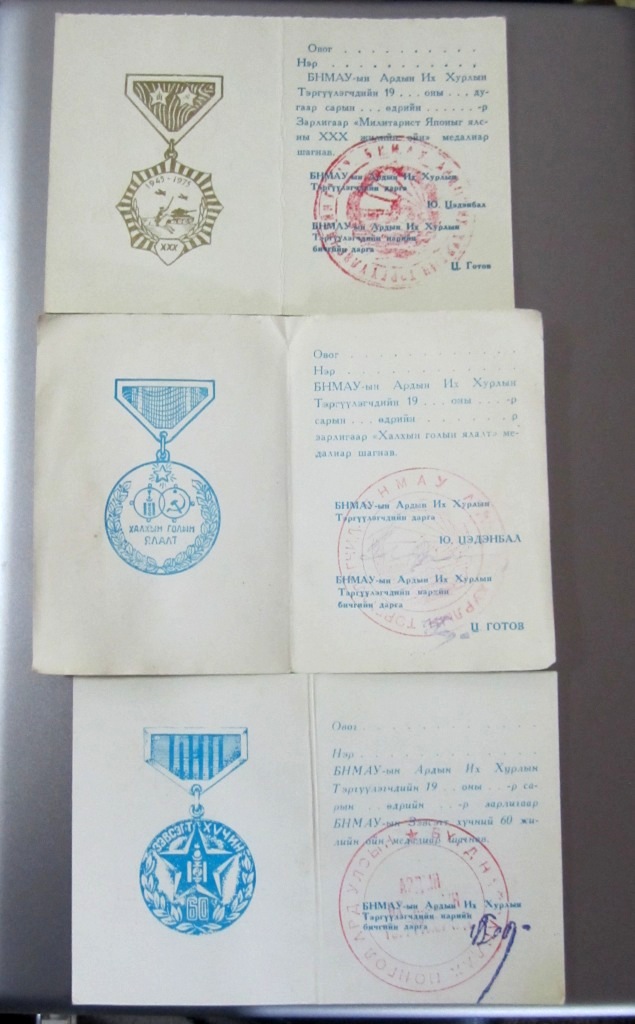 1945 - 1975
XXX
Овог
Нэр
БНМАУ-ын Ардын Их Хурлын
Тэргүүлэгчдийн 19 ... оны ... ду-
гаар сарын ... өдрийн ....... -р
Зарлигаар «Милитарист Япониг ялс-
ны XXX жилийн ойн» медалиар
шагнав.
БНМАУ-ын Ардын Их Хурлын
Тэргүүлэгчдийн дарга
Ю. Цэдэнбал
БНМАУ-ын Ардын Их Хурлын
Тэргүүлэгчдийн нарийн
бичгийн дарга
Ц. Готов
ХАЛХЫН ГОЛЫН
ЯЛАЛТ
Овог
Нэр
БНМАУ-ын Ардын Их Хурлын
Тэргүүлэгчдийн 19 ... оны ... -р
сарын ... өдрийн ... р
зарлигаар «Халхын голын ялалт» ме-
далиар шагнав.
БНМАУ-ын Ардын Их Хурлын
Тэргүүлэгчдийн дарга
Ю. ЦЭДЭНБАЛ
БНМАУ-ын Ардын Их Хурлын
Тэргүүлэгчдийн нарийн
бичгийн дарга
Ц ГОТОВ
ЗЭВСЭГТ ХҮЧИН
60
Овог
Нэр
БНМАУ-ын Ардын Их Хурлын
Тэргүүлэгчдийн 19 ... оны ... -р са-
рын ... өдрийн ... -р зарлигаар
БНМАУ-ын Зэвсэгт хүчний 60 жи-
лийн ойн медалиар
БНМАУ-ын Ардын Их Хурлын
Тэргүүлэгчдийн нарийн
бичгийн дарга